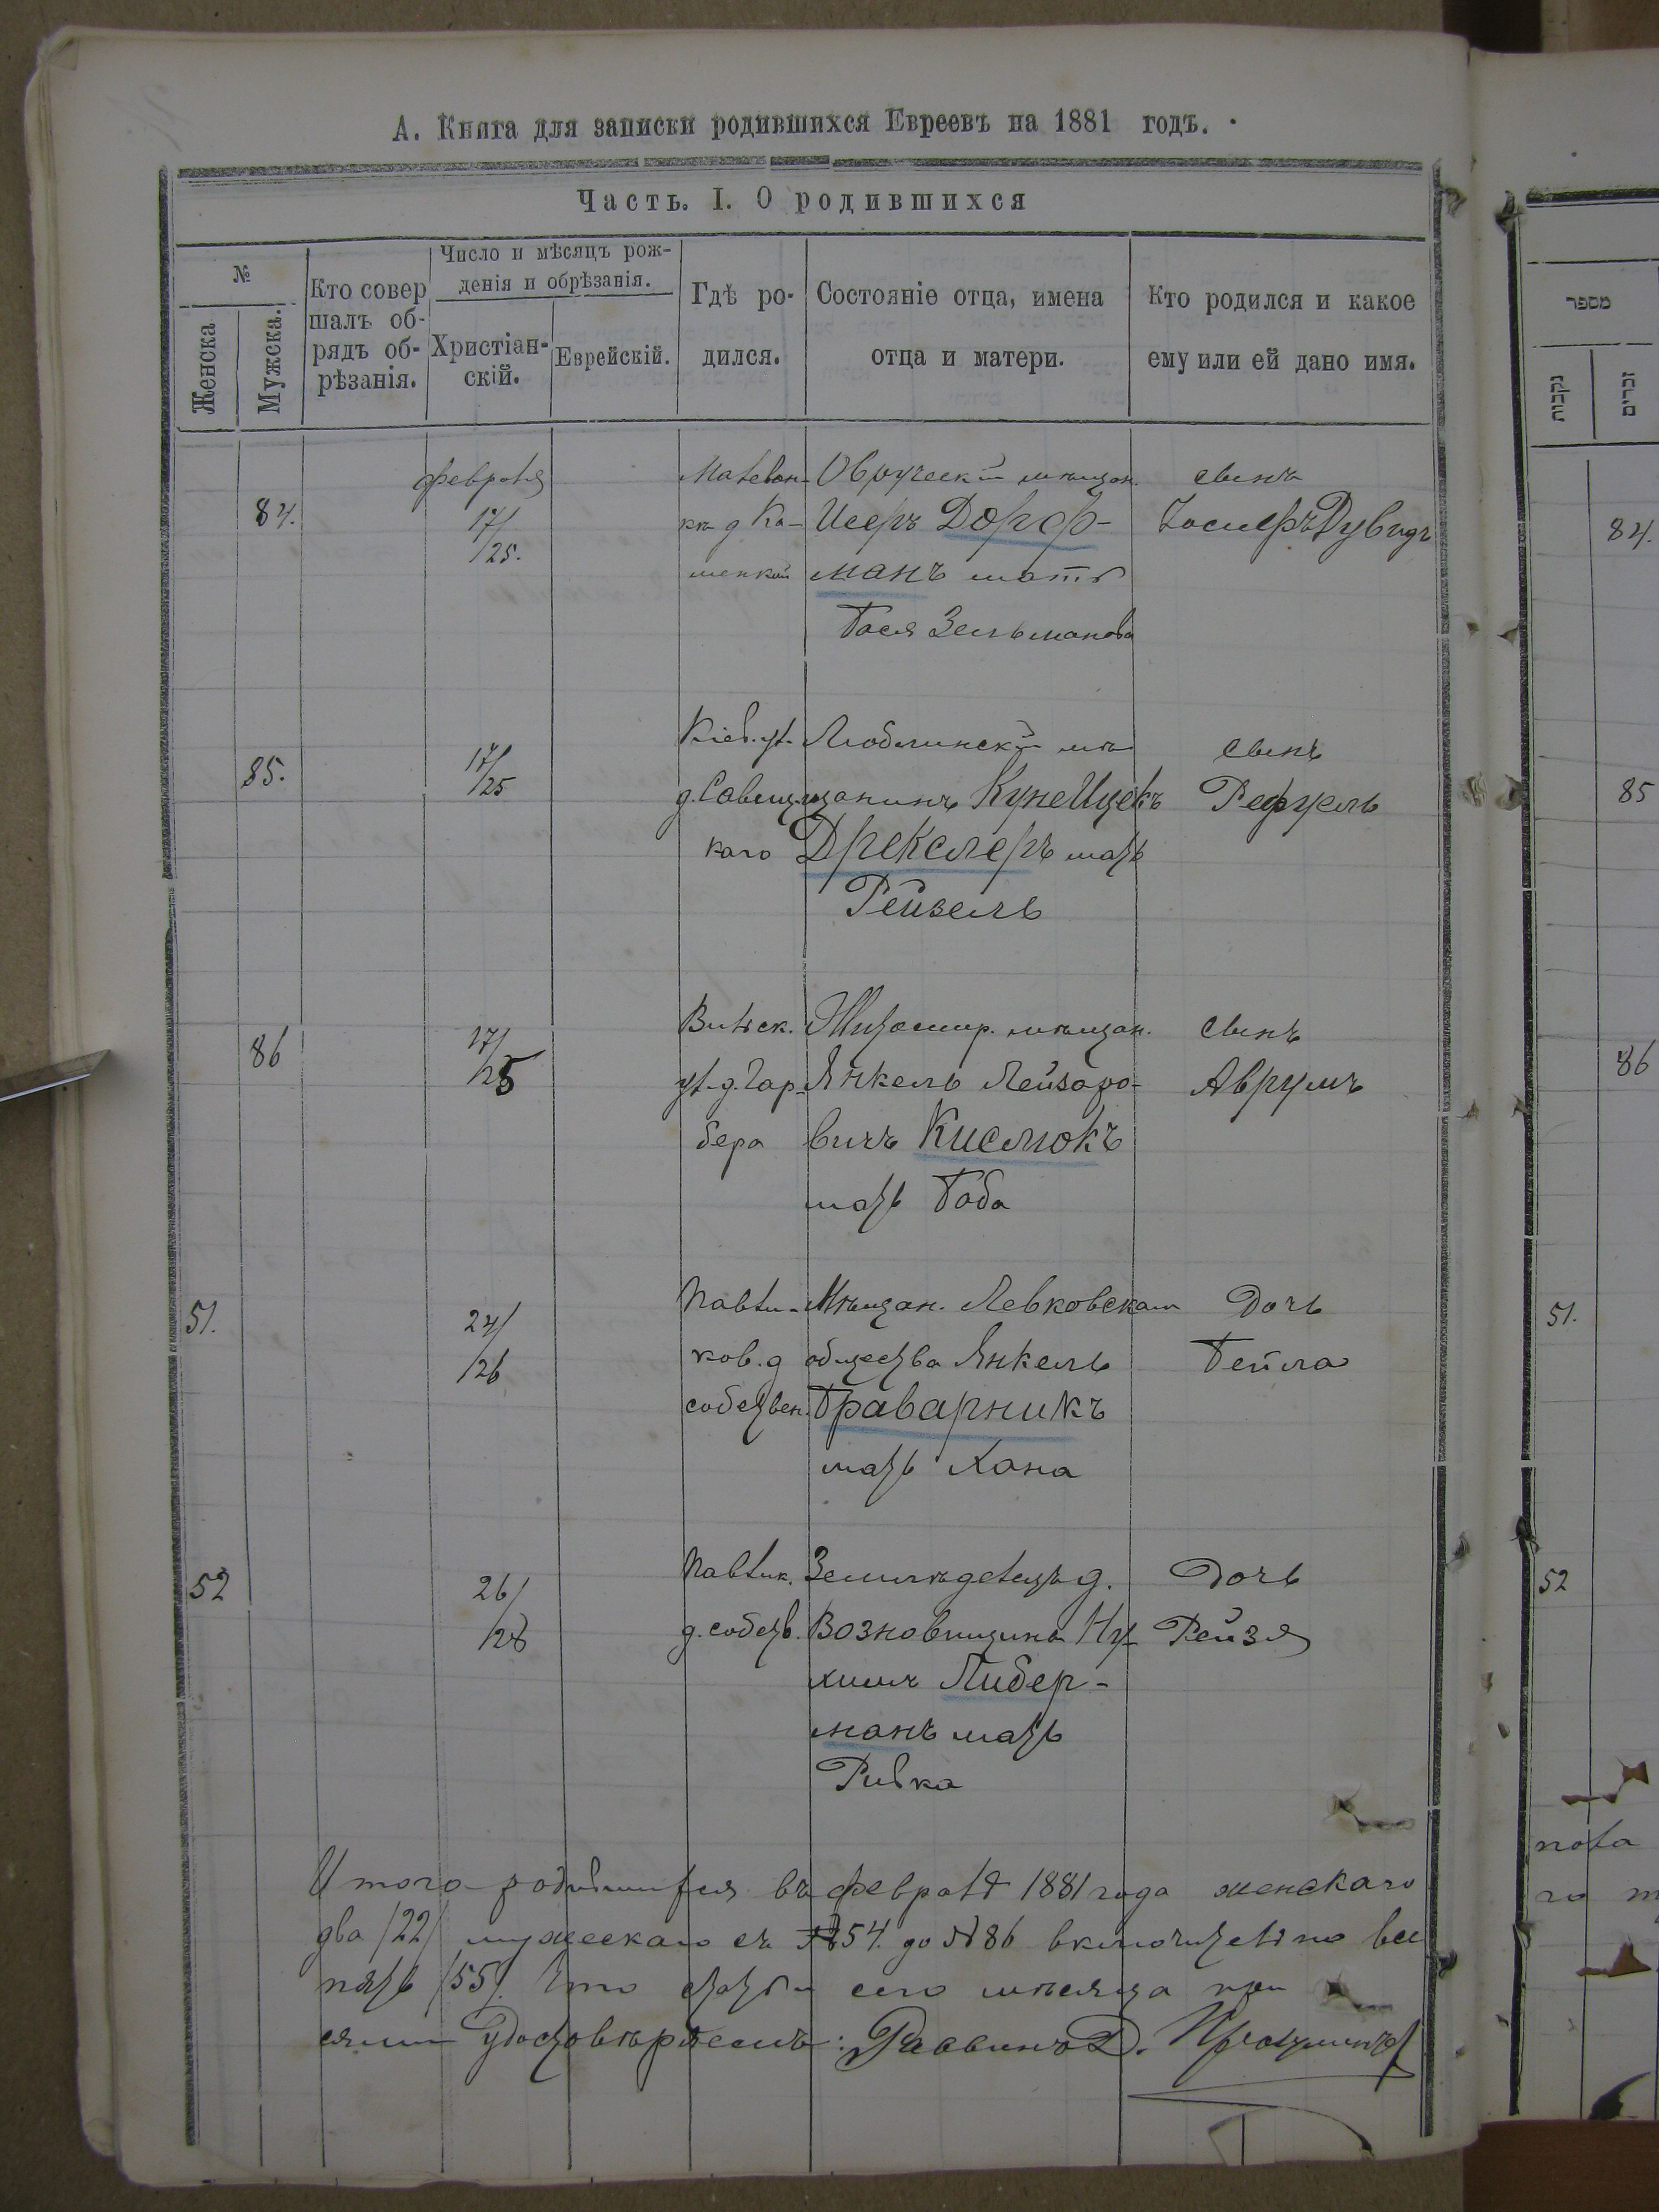 А. Книга для записки родившихся Евреевъ на 1881 годъ.
Часть. I. О родившихся
№
Женска
Мужска.
Кто совер
шалъ об-
рядъ об-
рѣзанія.
Число и мѣсяцъ рож-
денія и обрѣзанія.
Христіан-
скій.
Еврейскій.
Гдѣ ро-
дился.
Состояніе отца, имена
отца и матери.
Кто родился и какое
ему или ей дано имя.
84.
февраля
17/
/25.
Овруческій мѣщан.
Исеръ Дорф-
манъ мать
Бася Зельманова
сынъ
Іосифъ Дувидъ
85.
17/
/25
Кіев. ул.
Люблинскій мѣ
щанинъ Куне Ицекъ
каго
Дрекслеръ мать
Рейзель
сынъ
Рефуель
86
17/
/25
Житомир. мѣщан.
ул. д. Гар-
бера
Янкель Лейзоро-
вичъ Кислюкъ
мать Боба
сынъ
Аврумъ
51.
24/
/26
ков. д
собствен.
Мѣщан. Левковскаго
общества Янкель
Браварникъ
мать Хана
Дочь
Бейла
52
26/
/28
д. собств.
Земледелецъ д.
Возновщина Ну-
химъ Либер-
манъ мать
Ривка
Дочь
Рейзя
Итого родившихся въ февралѣ 1881 года женскаго
два /22/ мужескаго съ №54. до №86 включительно все
пять /55/. Что статьи сего мѣсяца
удостовѣряемъ: Раввинъ
מספר
נקבות
זכרים
84.
85
86
51.
52